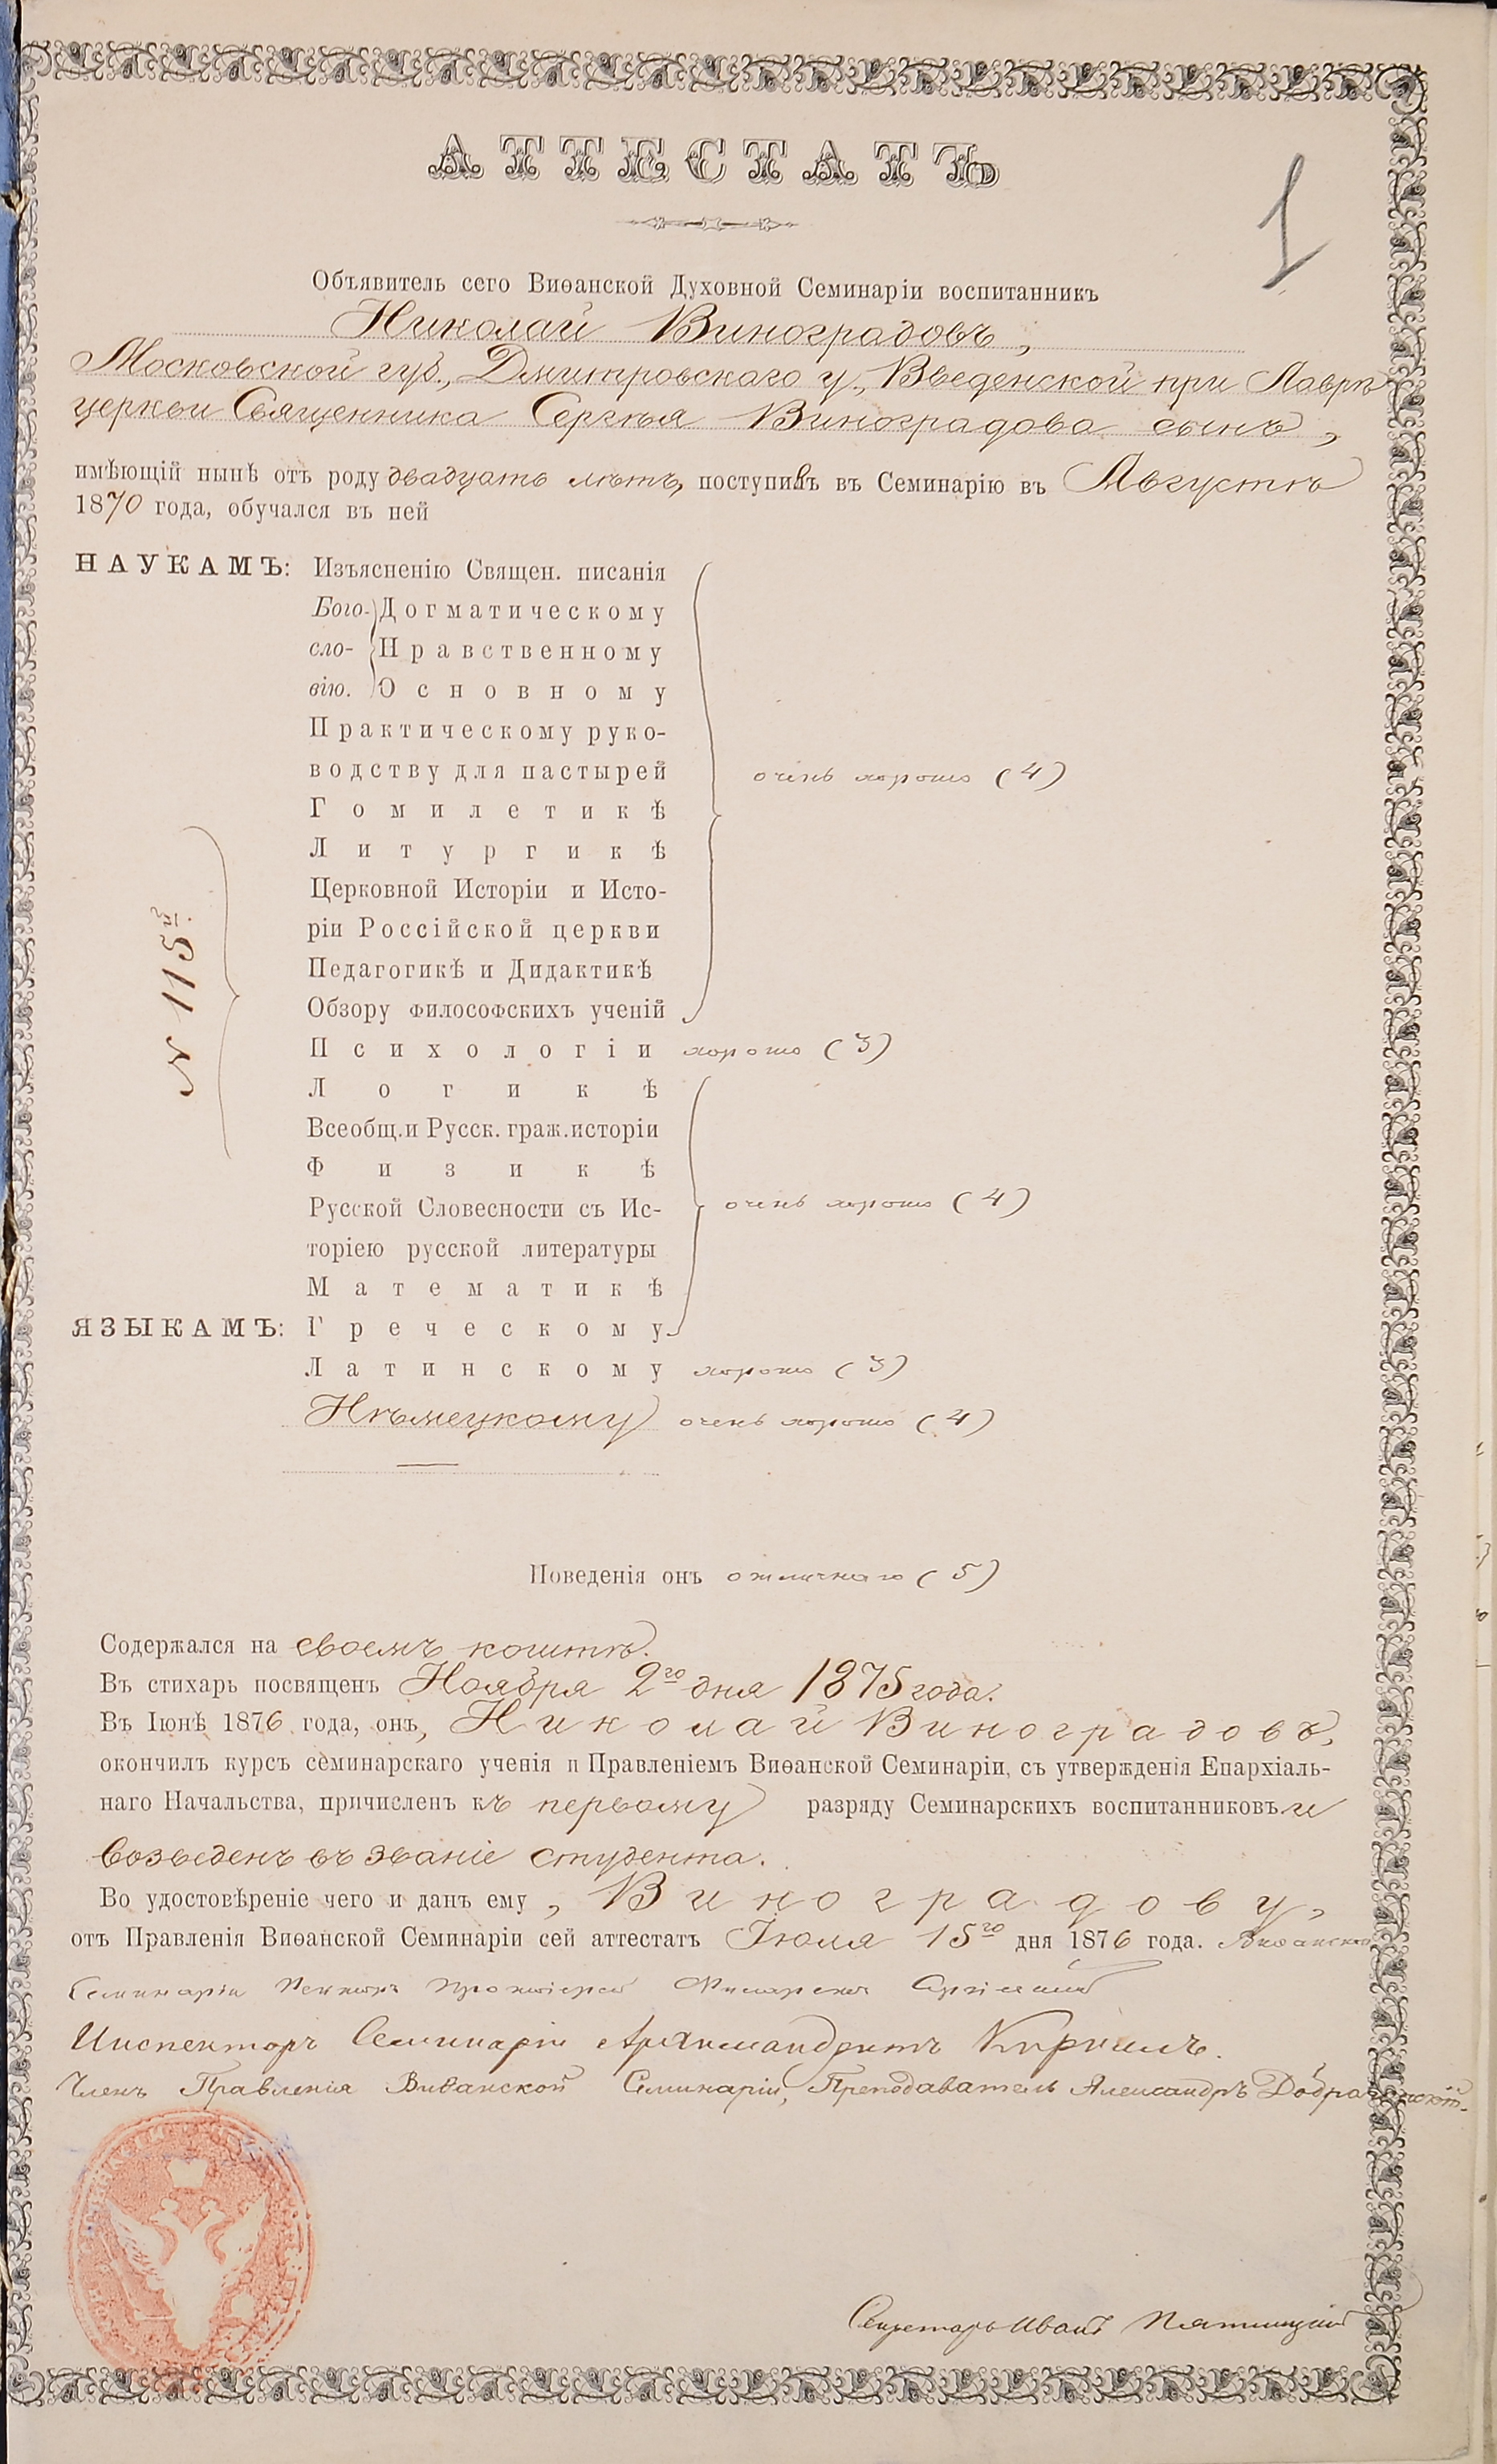 АТТЕСТАТЪ
1
Объявитель сего Виѳанской Духовной Семинаріи воспитанникъ
Николай Виноградовъ,
Московской губ., Дмитровскаго у., Введенской при Лаврѣ
церкви Священника Сергѣя Виноградова сынъ,
имѣющій нынѣ отъ роду двадцать лѣтъ, поступивъ въ Семинарію въ Августѣ
1870 года, обучался въ ней
НАУКАМЪ: Изъясненію Священ. писанія
Бого- Догматическому
сло- Нравственному
вію. Основному
Практическому руко-
водству для пастырей очень хорошо (4)
Гомилетикѣ
Литургикѣ
Церковной Исторіи и Исто-
ріи Россійской церкви
Педагогикѣ и Дидактикѣ
Обзору философскихъ ученій
Психологіи хорошо (3)
Логикѣ
Всеобщ. и Русск. граж. исторіи
Физикѣ
Русской Словесности съ Ис- очень хорошо (4)
торіею русской литературы
Математикѣ
ЯЗЫКАМЪ: Греческому
Латинскому хорошо (3)
Нѣмецкому очень хорошо (4)
№ 115й.
Поведенія онъ отличнаго (5)
Содержался на своемъ коштѣ.
Въ стихарь посвященъ Ноября 2го дня 1875 года.
Въ Іюнѣ 1876 года, онъ, Николай Виноградовъ,
окончилъ курсъ семинарскаго ученія и Правленіемъ Виѳанской Семинаріи, съ утвержденія Епархіаль-
наго Начальства, причисленъ къ первому разряду Семинарскихъ воспитанниковъ и
возведенъ въ званіе студента.
Во удостовѣреніе чего и данъ ему, Виноградову,
отъ Правленія Виѳанской Семинаріи сей аттестатъ Іюля 15го дня 1876 года. Виѳанской
Семинаріи Ректоръ Протоіерей
Инспекторъ Семинаріи Архимандритъ Кириллъ.
Членъ Правленія Виѳанской Семинаріи, Преподаватель Александръ
Секретарь Иванъ Пятницкій